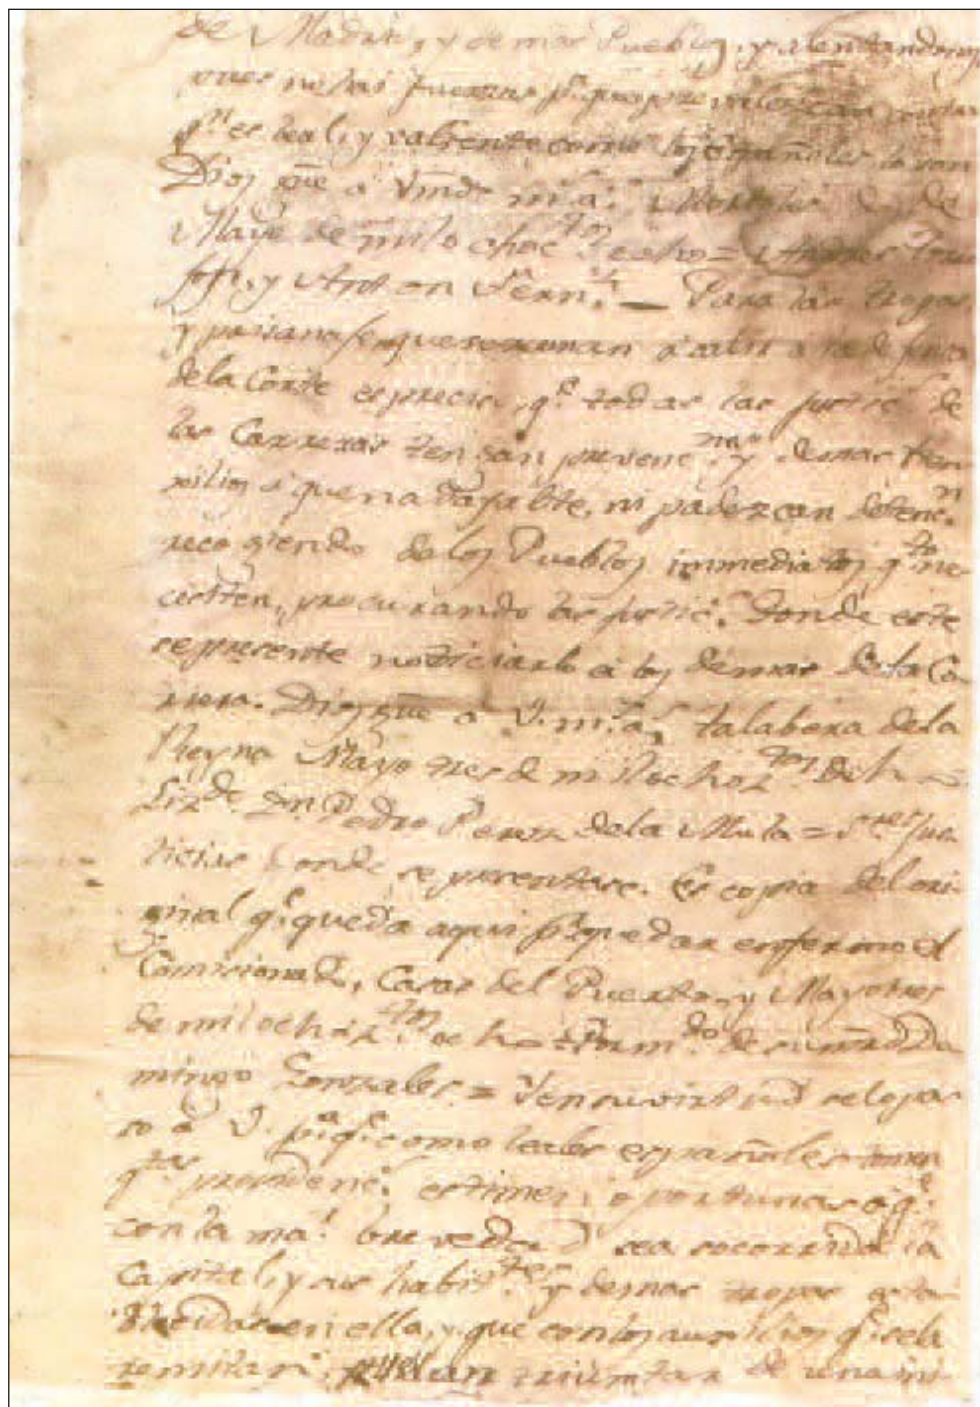 de Madrid, y demas Pueblos, y alentandonos
pues no hai fuerzas pª. que prevalezcan contra
qⁿ. es leal, y valiente como los Españoles lo son
Dios gue á Vmds. m.ª. Mostoles dos de
Mayo de mil ochoctos. y ocho = Andres Torre
jon, y Anton Hernz. — Para las tropas
y paisanos que
de la Corte es preciso qe. todas las justic.s de
las Carreras tengan prevenc.nes y demas
á que nada falte, ni padezcan detenc.n
recogiendo de los Pueblos inmediatos qto. ne-
cesiten, procurando las justic.s donde este
se presente noticiarlo á los demas de la Ca-
rrera. Dios gue á V. m.s a.s talabera de la
Reyna Mayo tres de mil ochoz.tos ocho =
Liz.do Dn. Pedro Perez de la Mula = S.res Jus-
ticias donde se presentare. Es copia del ori-
ginal qe. queda aqui pr. quedar enfermo el
Comicionado, Casas del Puerto, y Mayo tres
de mil ochoz.tos ocho = Por m.do de su mrd Do
mingo Gonzalez = Y en su virtud se lo pa
so á V. pª. qe. como leales españoles tomen
q.tas providenc.s estimen oportunas á qe.
con la ma.r brevedad sea socorrida la
Capital, y sus habit.tes y demas tropas esta
blecidas en ella, y que con los auxilios qe. se la
remitan, puedan triumfar de una in-